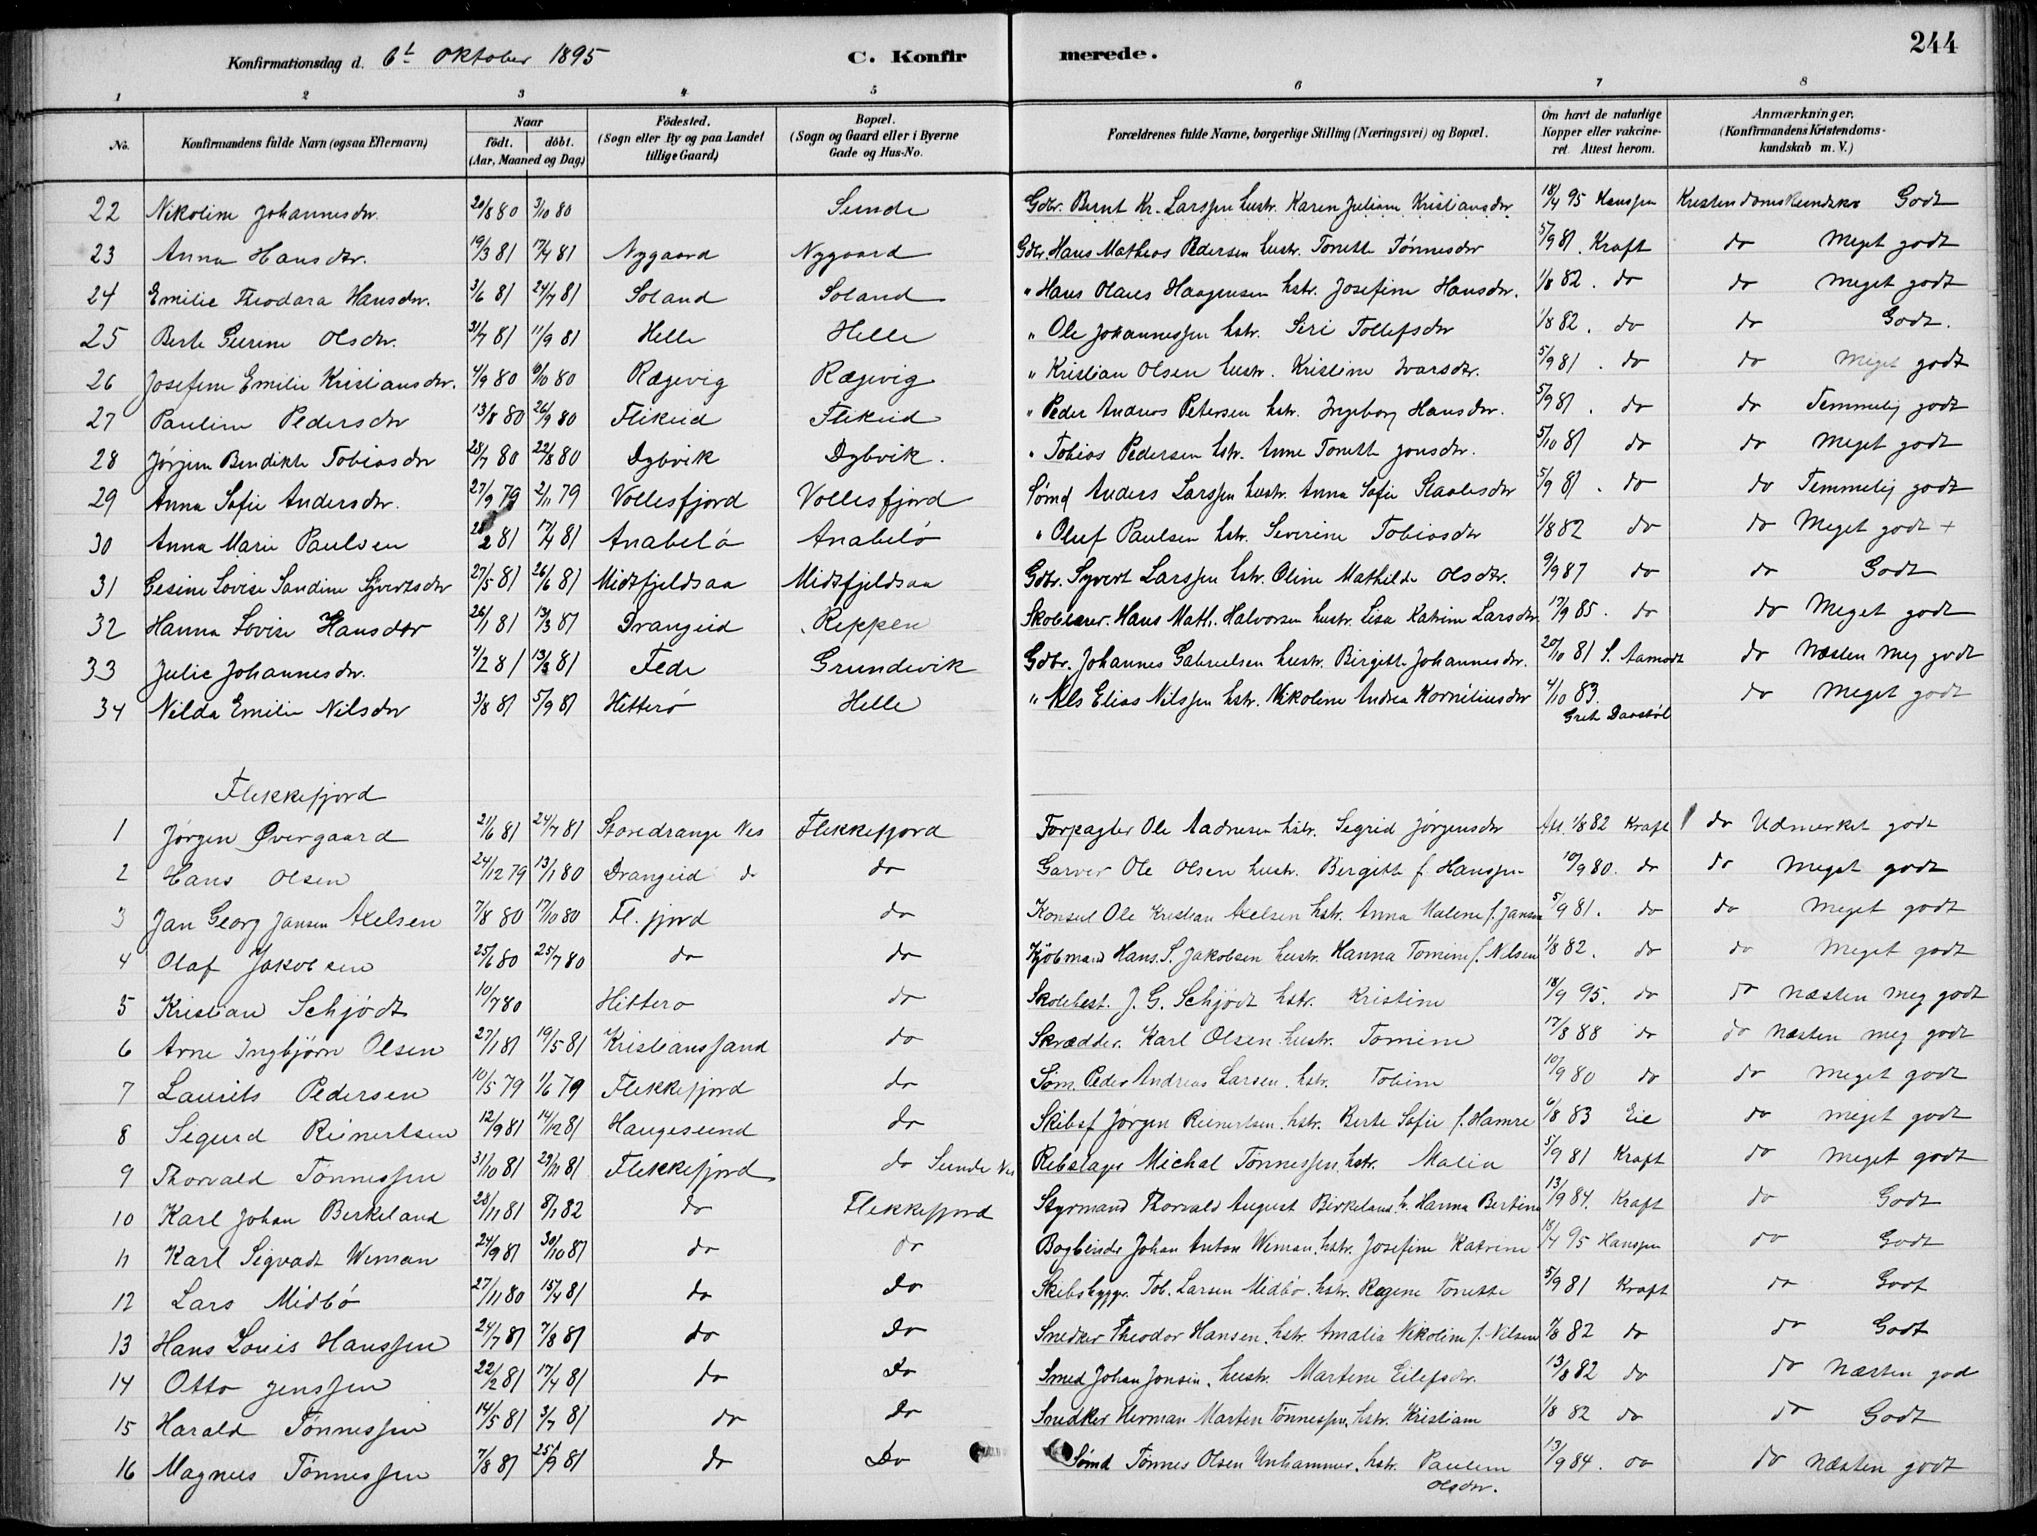 244
Konfirmationsdag d. 6t Oktober 1895 C. Konfirmerede.
1 2 3 4 5 6 7 8
No. Konfirmandens fulde Navn (ogsaa Efternavn) Naar født. døbt. (Aar, Maaned og Dag) Fødested. (Sogn eller By og paa Landet tillige Gaard) Bopæl. (Sogn og Gaard eller i Byerne Gade og Hus-No. Forældrenes fulde Navne, borgerlige Stilling (Næringsvei) og Bopæl. Om havt de naturlige Kopper eller vakcineret. Attest herom. Anmærkninger. (Konfirmandens Kristendomskundskab m. V.)
22 Nikoline Johannesdtr. 20/8 80 3/10 80 Sunde Gdbr. Bernt Kr. Larssen hustr. Karen Juliane Kristiansdtr. 18/4 95 Hanssen Kristendomskundska Godt
23 Anna Hansdtr. 19/3 81 17/4 81 Nygaard Nygaard Gdbr. Hans Mathias Pedersen hustr. Tonette Tönnesdtr 5/9 81. Kraft do Meget godt
24 Emilie Theodora Hansdtr. 3/6 81 24/7 81 Soland Soland " Hans Olaus Haagensen hstr. Josefine Hansdtr. 1/8 82. do do Meget godt
25 Berte Gurine Olsdtr. 31/7 81 11/9 81 Helle Helle " Ole Johannessen hstr. Siri Tollefsdtr 1/8 82. do do Godt.
26 Josefine Emilie Kristiansdtr. 4/9 80 6/10 80 Rægevig Rægevig " Kristian Olsen hustr. Kristine Ivarsdtr. 5/9 81. do do Meget godt
27 Pauline Pedersdtr 13/8 80 26/9 80 Flikeid Flikeid " Peder Andreas Petersen hstr. Ingeborg Hansdtr. 5/9 81. do do Temmelig godt
28 Jørgine Bendikte Tobiasdtr 28/7 80 22/8 80 Dybvik Dybvik. " Tobias Pedersen hstr. Anne Tonette Jonsdtr. 5/10 81 do do Meget godt
29 Anna Sofie Andersdtr. 27/9 79 2/11 79 Vollesfjord Vollesfjord Sømd Anders Larssen hustr. Anna Sofie Staalesdtr 5/9 81. do do Temmelig godt
30 Anna Marie Paulsen 28/2 81 17/4 81 Anabelö Anabelö " Oluf Paulsen hstr. Severine Tobiasdtr 1/8 82 do do Meget godt +
31 Gesine Lovise Sandine Syvertsdtr 27/5 81 26/6 81 Midtfjeldsaa Midtfjeldsaa Gdbr. Syvert Larssen hstr. Oline Mathilde Olsdtr. 9/9 87 do do Godt
32 Hanna Lovise Hansdtr 26/1 81 13/3 81 Drangeid Reppen Skolelærer. Hans Math. Halvorsen hustr. Lisa Katrine Larsdtr. 17/9 85. do do Meget godt
33 Julie Johannesdtr. 4/2 81 13/3 81 Fede Grundevik Gdbr. Johannes Gabrielsen hustr. Birgitte Johannesdtr. 20/10 81 S. Aamodt do Næsten meg godt
34 Nilda Emilie Nilsdtr 3/8 81 5/9 81 Hitterö Helle " Nils Elias Nilssen hstr. Nikoline Andrea Kornéliusdtr 4/10 83. Greh. Daastöl do Meget godt
Flekkefjord
1 Jørgen Øvergaard 21/6 81 24/7 81 Storedrange Nes Flekkefjord Forpagter Ole Aadnesen hstr. Sigrid Jørgensdtr Att. 1/8 82 Kraft do Udmerket godt
2 Hans Olsen 24/12 79 13/1 80 Drangeid do do Garver Ole Olsen hustr. Bergitte f. Hanssen 10/9 80. do do Meget godt
3 Jan Georg Jansen Axelsen 7/8 80 17/10 80 Fl. fjord do Konsul Ole Kristian Axelsen hstr. Anna Malene f. Jansen 5/9 81. do do Meget godt
4 Olaf Jakobsen 25/6 80 25/7 80 do do Kjöbmand Hans. S. Jakobsen hustr. Hanna Tomine f. Nilsen 1/8 82. do do Meget godt
5 Kristian Schjödt 10/7 80 Hitterö do Skolebest. J. G. Schjödt hstr. Kristine 18/9 95. do do næsten meg godt
6 Arne Ingbjörn Olsen 27/1 81 19/5 81 Kristianssand do Skrædder. Karl Olsen hustr. Tomine 17/8 88 do do næsten meg godt
7 Laurits Pedersen 10/5 79 1/6 79 Flekkefjord do Søm. Peder Andreas Larsen. hstr. Tobine 10/9 80 do do Meget godt
8 Sigurd Reinertsen 12/9 81 14/12 81 Haugesund do Skibsf Jørgen Reinertsen. hstr. Berte Sofie f. Hamre 6/8 83 Eie do Meget godt
9 Thorvald Tönnessen 31/10 81 29/11 81 Flekkefjord do Sunde Nes Rebslager Michal Tonnessen. hstr. Malin 5/9 81 Kraft do Meget godt
10 Karl Johan Berkeland 28/11 81 8/1 82 do Flekkefjord Styrmand Thorvald August Birkeland. h. Hanna Bertine 13/9 84. Kraft do Godt
11 Karl Sigvadt Weman 24/9 81 30/10 81 do do Bogbinder Johan Anton Weman. hstr. Josefine Katrine 18/4 95 Hanssen do Godt
12 Lars Midbö 27/11 80 15/4 81 do Do Skibsbygger. Tob. Larsen Midbö. hstr. Regine Tonette 5/9 81 Kraft do Godt
13 Hans Louis Hanssen 24/7 81 7/8 81 do Do Snedker Theodor Hansen. hstr. Amalia Nikoline f. Nilsen 7/8 82 do do Godt
14 Otto Jenssen 22/2 81 17/4 81 do Do Smed Johan Jonsen. hustr. Martine Eilefsdtr. 13/8 82 do do Næsten god
15 Harald Tönnessen 14/5 81 3/7 81 do Do Snedker Herman Martin Tönnessen. hstr. Kristiane 1/8 82 do do Godt
16 Magnus Tönnessen 7/8 81 25/9 81 do Do Sømd Tönnes Olsen Unhammer. hstr. Pauline Olsdtr. 13/9 84. do do næsten godt